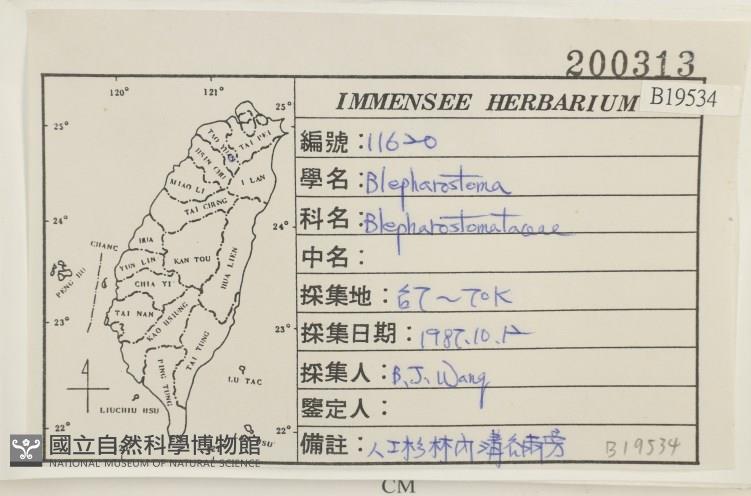 200313
IMMENSEE HERBARIUM
B19534
編號：11620
學名：Blepharostoma
科名：Blepharostomataceae
中名：
採集地：台7～70K
採集日期：1987.10.12
採集人：B.J. Wang
鑒定人：
備註：人工杉林內溝谷兩旁
B19534
120°
121°
25°
25°
TAO YUAN
TAI PEI
HSIN CHU
I LAN
MIAO LI
TAI CHNG
24°
24°
CHANG
HUA
PENG HU
YUN LIN
KAN TOU
HUA LIEN
CHIA YI
23°
23°
TAI NAN
KAO HSIUNG
TAI TUNG
PING TUNG
LU TAO
LIUCHIU HSU
22°
22°
國立自然科學博物館
NATIONAL MUSEUM OF NATURAL SCIENCE
CM